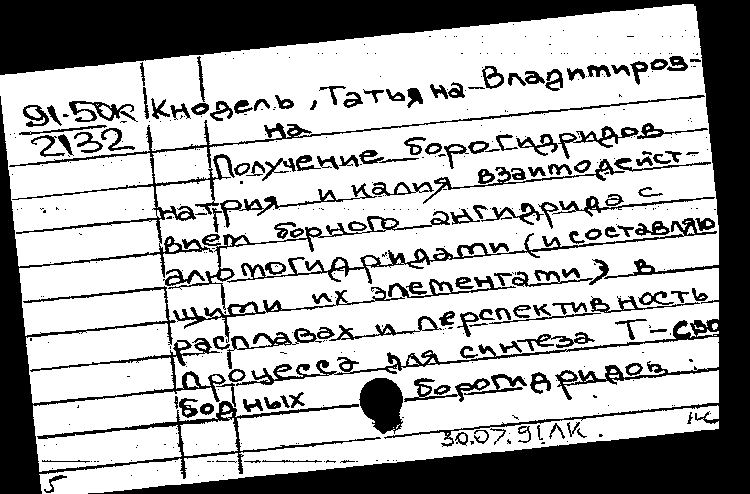 91-50к Кнодель, Татьяна Владимиров-
2132 на
Получение борогидридов
натрия и калия взаимодейст-
вием борного ангидрида с
алюмогидридами (и составляю
щими их элементами) в
расплавах и перспективность
процесса для синтеза Т-сво
бодных борогидридов.
30.07.91 ЛК.
5